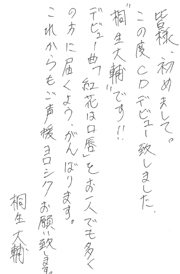 皆様、初めまして。
この度CDデビュー致しました、
"桐生大輔"です!!
デビュー曲「紅花は口唇」をお一人でも多く
の方に届くよう、がんばります。
これからもご声援ヨロシクお願い致します。
桐生大輔